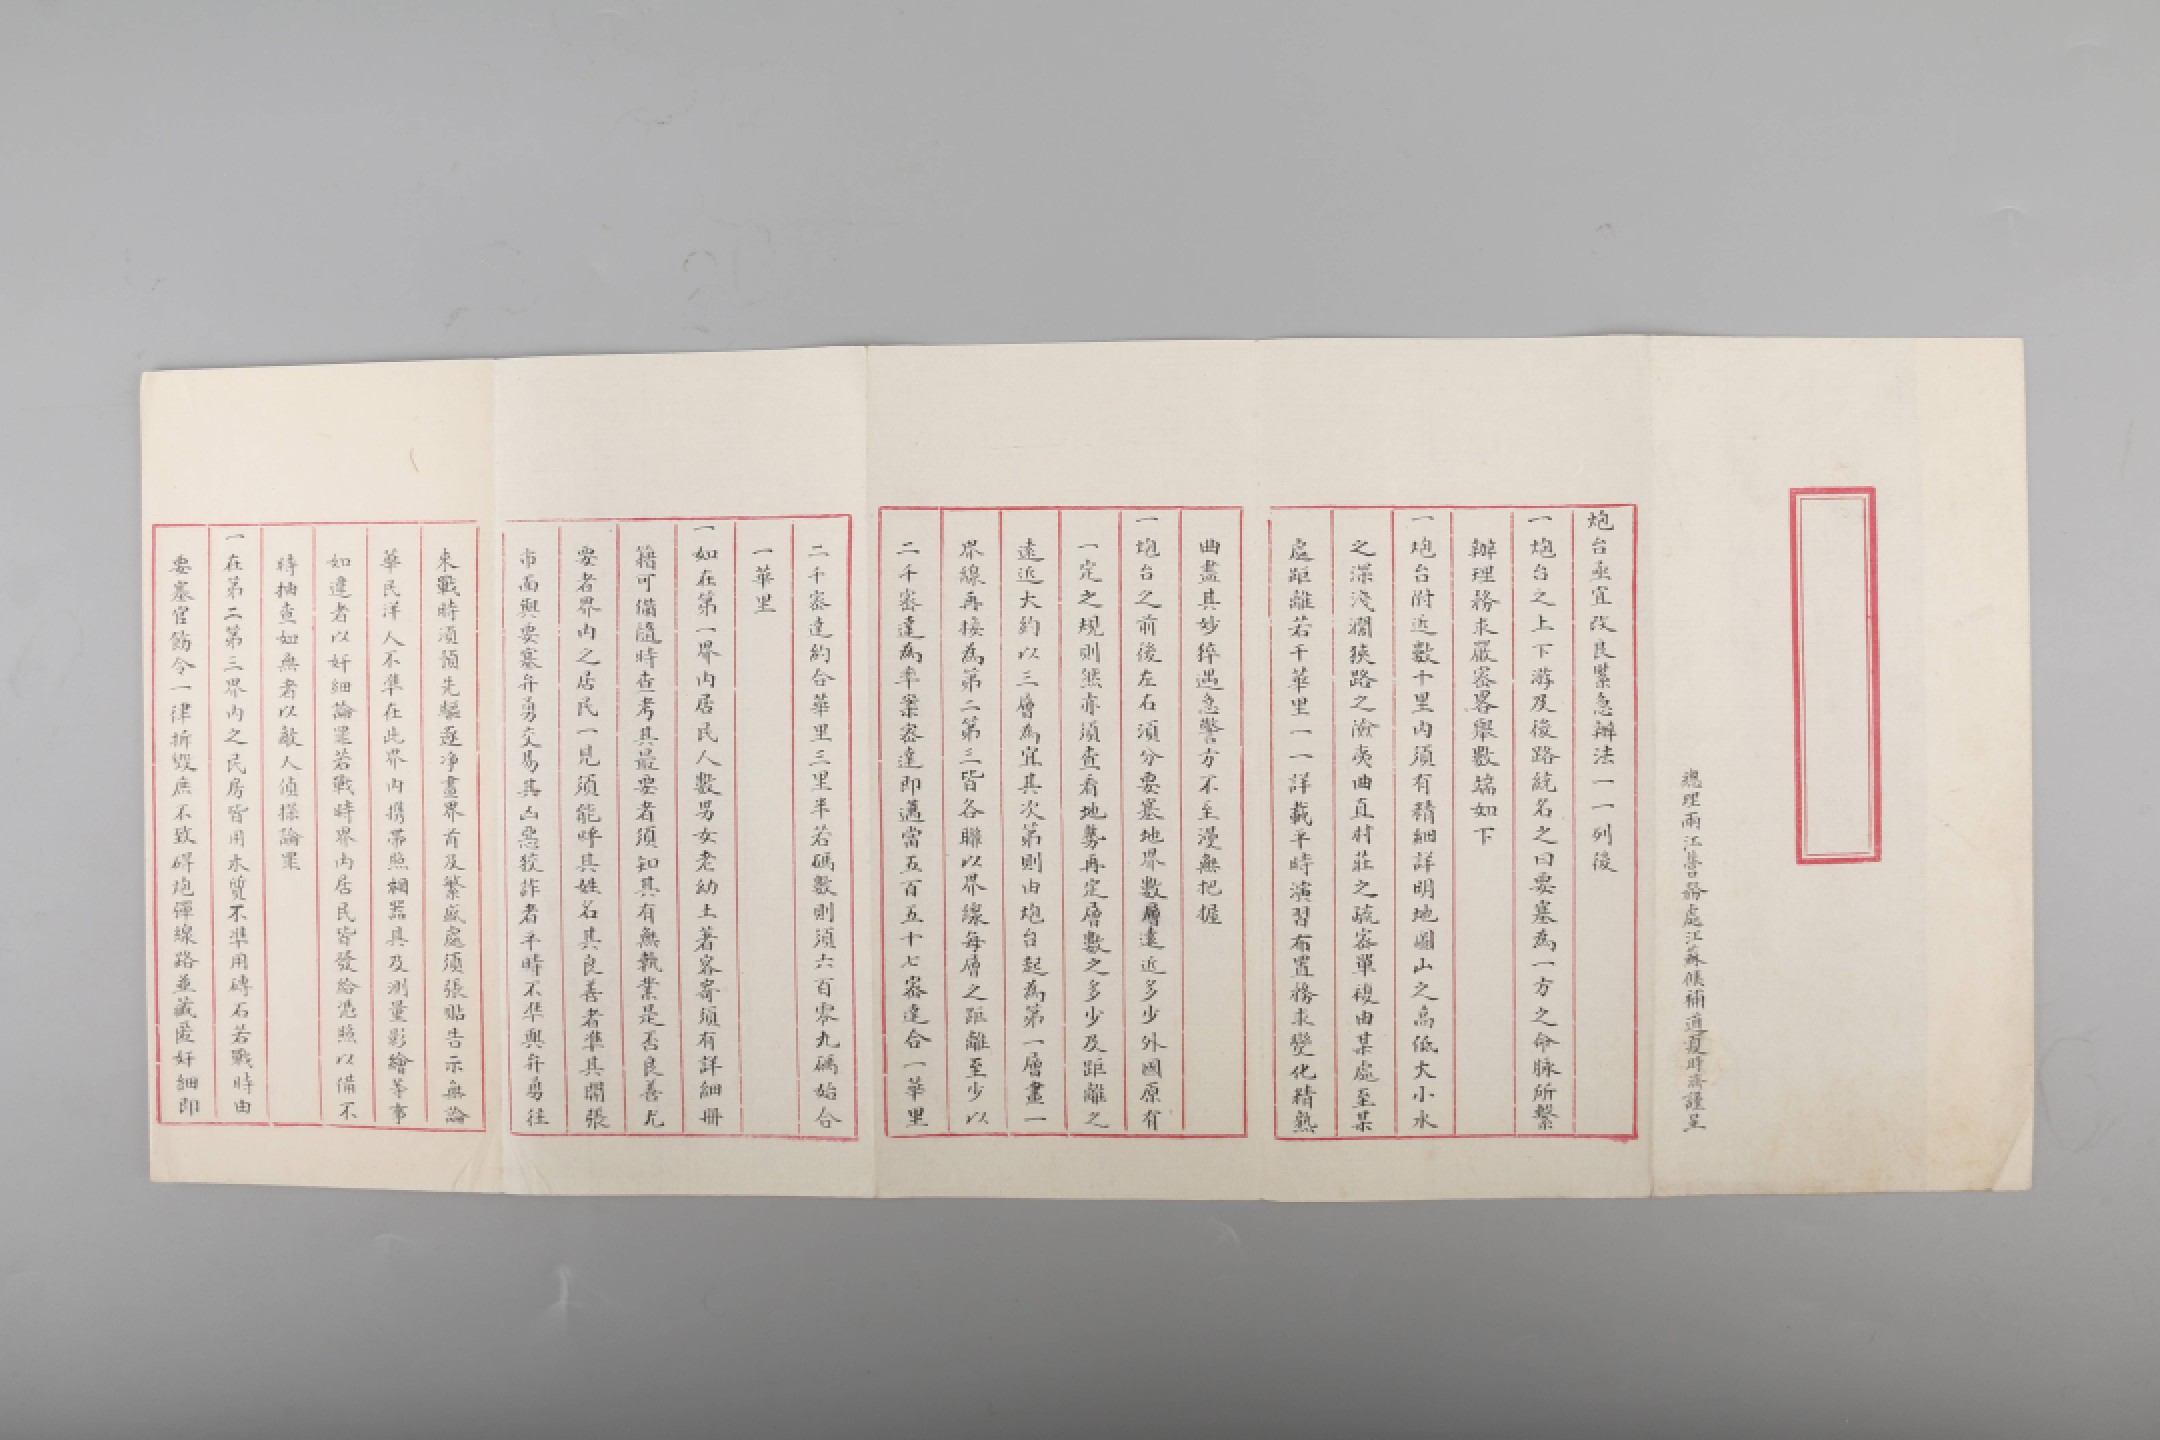 總理兩江營務處江蘇候補道夏時濟謹呈
炮台亟宜改良緊急辦法一一列後
一炮台之上下游及後路統名之曰要塞為一方之命脉所繫
辦理務求嚴密畧舉數端如下
一炮台附近數十里內須有精細詳明地圖山之高低大小水
之深淺濶狹路之險夷曲直村莊之疏密單複由某處至某
處距離若干華里一一詳載平時演習布置務求變化精熟
曲盡其妙猝遇急警方不至漫無把握
一炮台之前後左右須分要塞地界數層遠近多少外國原有
一定之規則然亦須查看地勢再定層數之多少及距離之
遠近大約以三層為宜其次第則由炮台起為第一層畫一
界線再接為第二第三皆各聯以界線每層之距離至少以
二千密達為率案密達即邁當五百五十七密達合一華里
二千密達約合華里三里半若碼數則須六百零九碼始合
一華里
一如在第一界內居民人數男女老幼土著客寄須有詳細冊
籍可備隨時查考其最要者須知其有無執業是否良善尤
要者界內之居民一見須能呼其姓名其良善者準其開張
市面與要塞弁勇交易其凶惡狡詐者平時不準與弁勇往
來戰時須預先驅逐淨盡界首及繁盛處須張貼告示無論
華民洋人不準在此界內携帶照相器具及測量影繪等事
如違者以奸細論罪若戰時界內居民皆發給憑照以備不
時抽查如無者以敵人偵探論罪
一在第二第三界內之民房皆用木質不準用磚石若戰時由
要塞官飭令一律拆毀庶不致碍炮彈線路並藏匿奸細即